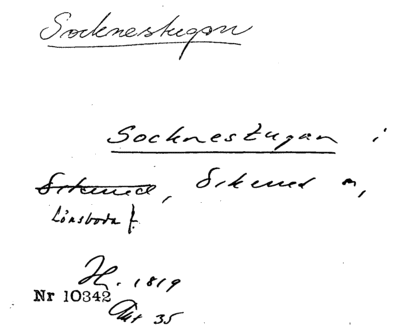 Socknestugan
Socknestugan i
Örkened, Örkened sn,
Lönsboda f.
H. 1819
Nr 10342
Akt 35